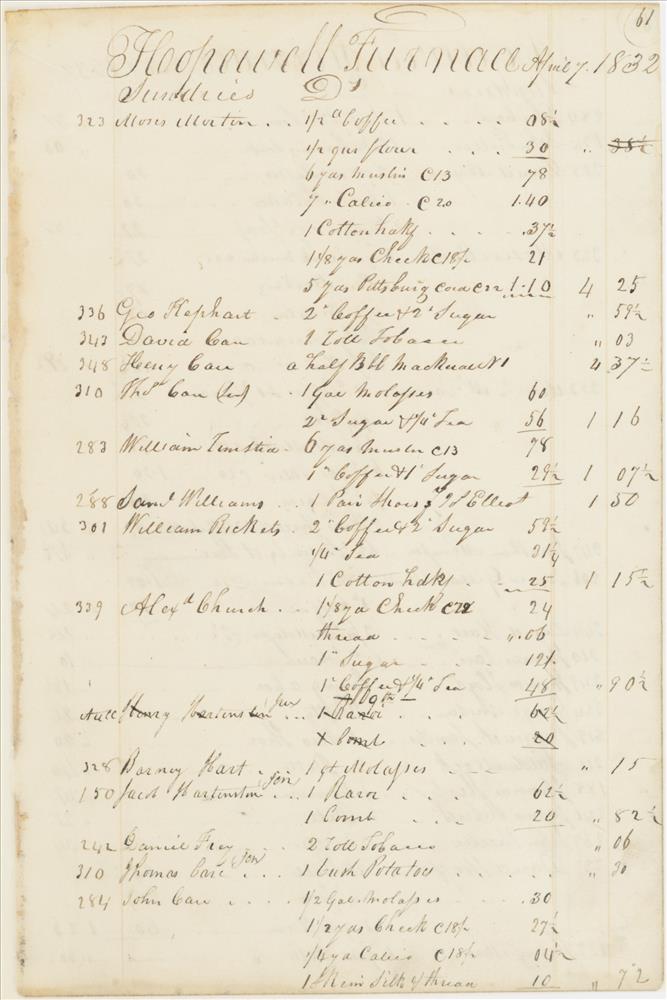 61
Hopewell Furnace April 7. 1832
Sundries Dr
323 Moses Morton . . 1/2 " Coffee . . . . 08½
1/2 qur flour . . . 30 " 38½
6 yds Muslin C13 78
7 " Calico . C20 1.40
1 Cotton hdkf . . . .37½
1 1/8 yds Check C18p 21
5 yds Pittsburg Cord C22 1.10 4 25
336 Geo Hephart . 2" Coffee & 2" Sugar " 59½
343 David Care 1 Roll Tobacco " 03
348 Henry Care a half Bbl Mackrael N1 4 37½
310 Thos Care 1 Gal Molasses 60
2" Sugar & 1/4" Tea 56 1 16
283 William . 6 yds Muslin C13 78
1" Coffee & 1" Sugar 29½ 1 07½
288 Saml Williams . . 1 Pair Shoes J Elliot 1 50
301 William Rickets . 2" Coffee & 2" Sugar 59½
1/4" Tea 31¼
1 Cotton hdkf . . 25 1 15½
339 Alexd Church . . 1 1/8 yd Check C22 24
thread . . . . ".06
1" Sugar . . . 12½
1" Coffee & 1/4" Tea 48 " 90½
9th
Henry Hartenstin Jur . . . 1 Razor . . . 62½
1 Comb . . . . 20
328 Barney Hart . 1 qt Molasses . . . " 15
150 Jacob Hartenstin Son . . . 1 Razor . . . 62½
1 Comb . . . 20 " 82½
242 Daniel Frey . . . 2 Roll Tobacco " 06
310 Thomas Care Son . . . 1 bush Potatoes . . . . . " 30
284 John Care . . . . 1/2 Gal. Molasses . . .30
1 1/2 yds Check C18p 27½
1/4 yd Calico C18p 04½
1 Skein Silk & thread 10 " 72